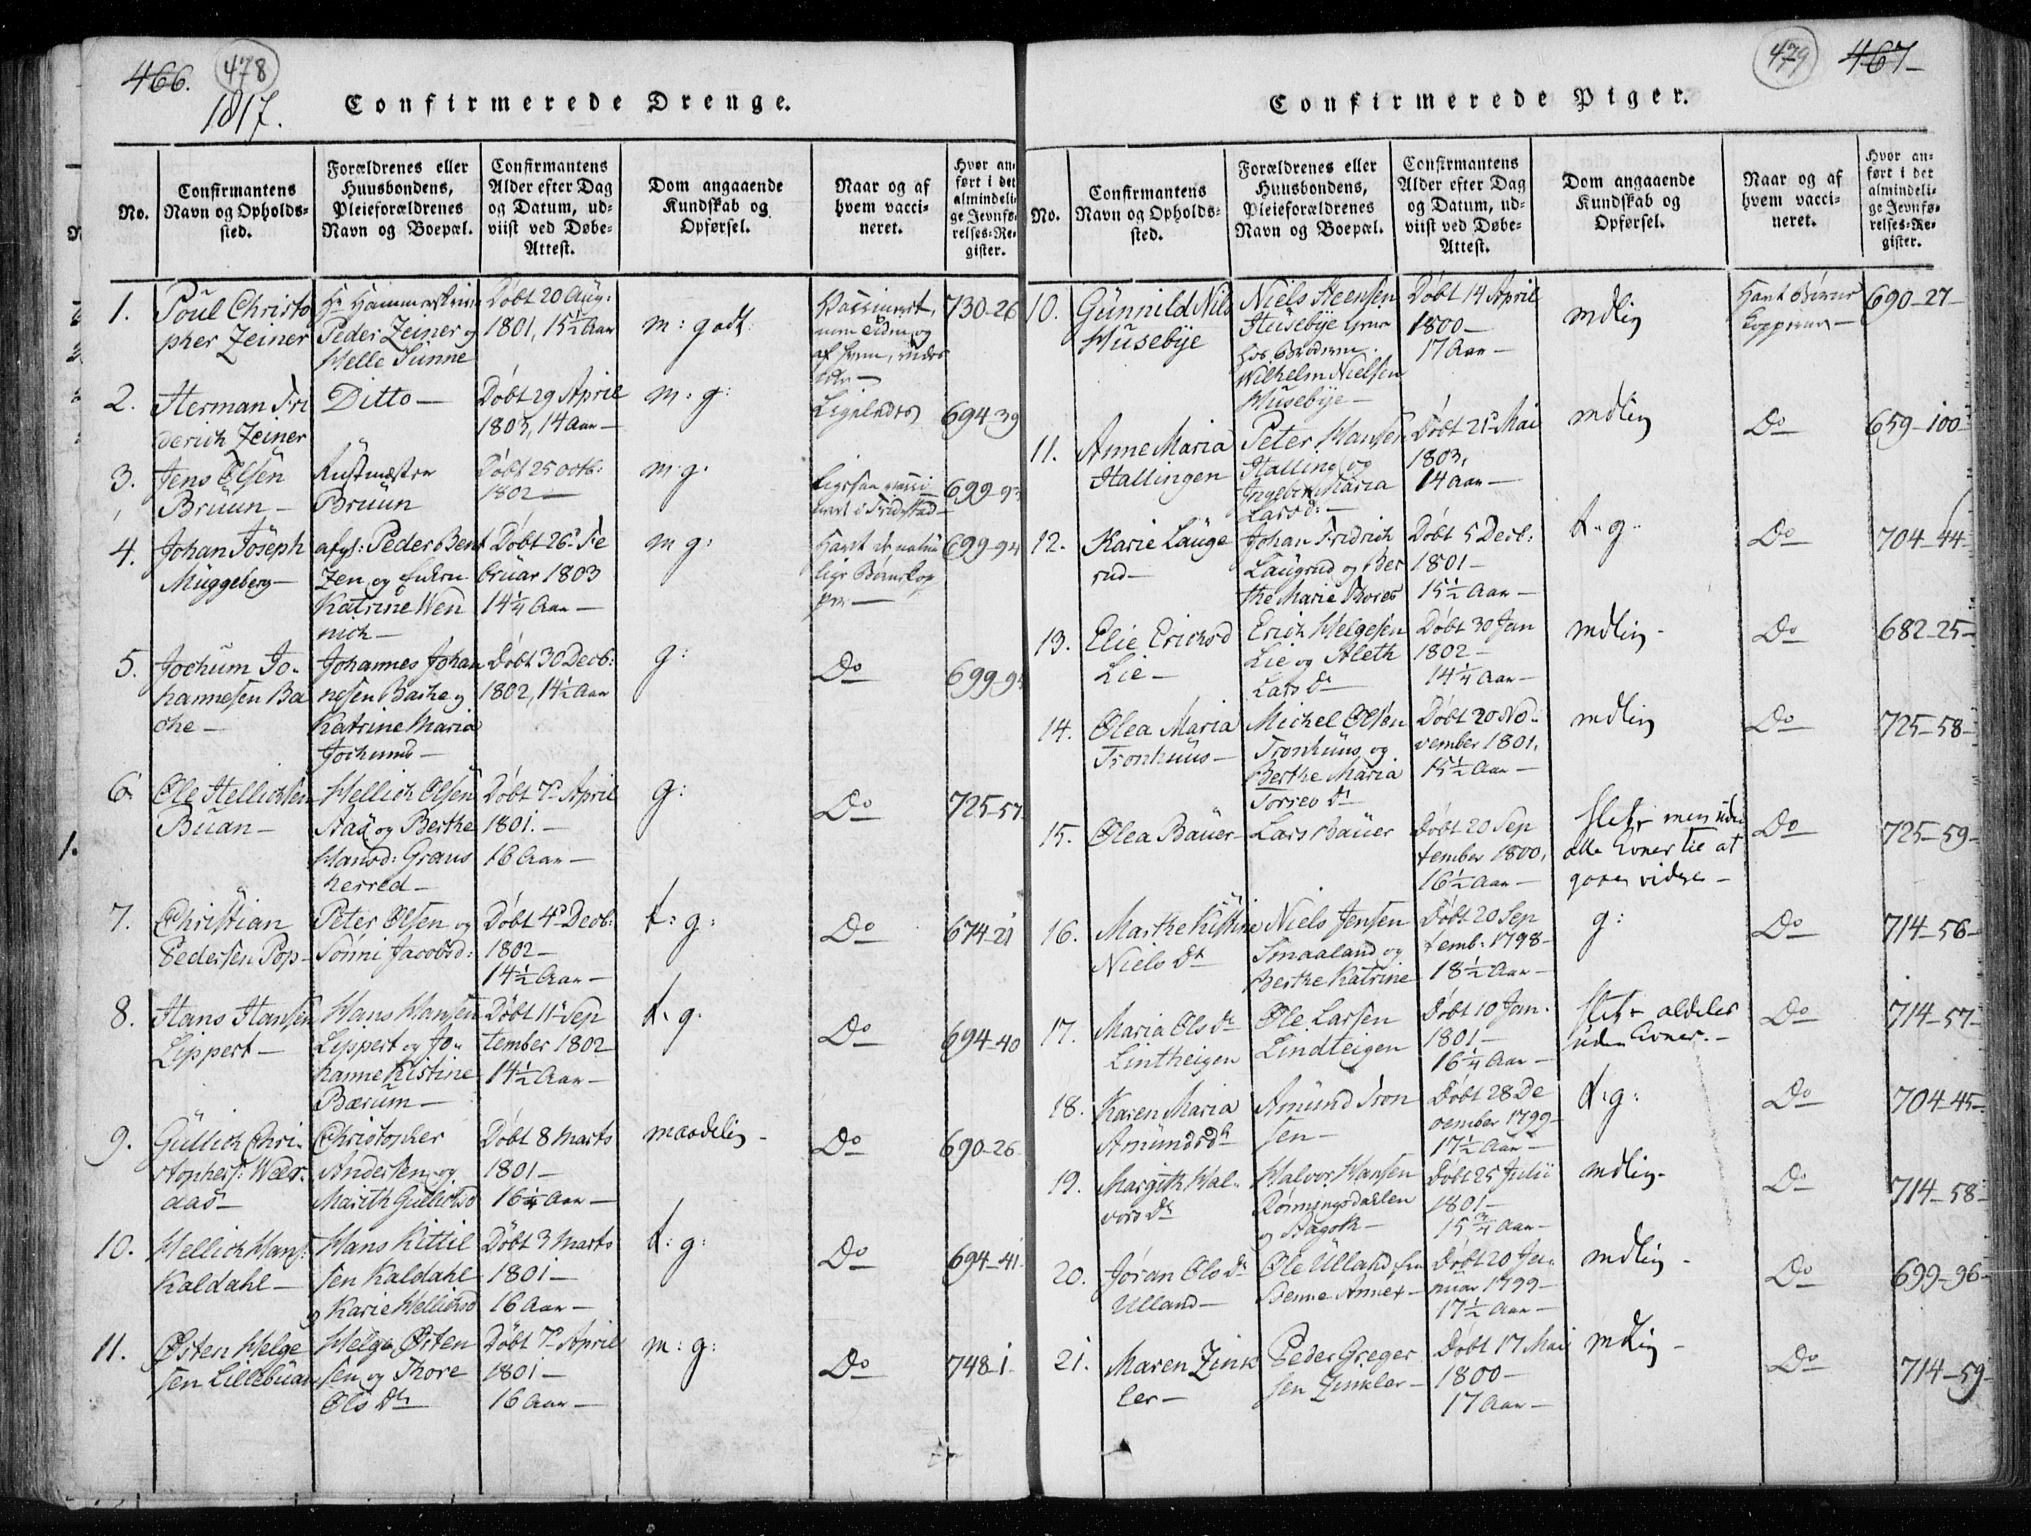 466. 478
1817.
Confirmerede Drenge.
No.
Confirmantens
Navn og Opholds-
sted.
Forældrenes eller
Huusbondens,
Pleieforældrenes
Navn og Boepæl.
Confirmantens
Alder efter Dag
og Datum, ud-
viist ved Døbe-
Attest.
Dom angaaende
Kundskab og
Opførsel.
Naar og af
hvem vacci-
neret.
Hvor an-
ført i det
almindeli-
ge Jevnfø-
relses-Re-
gister.
1.
Poul Christo
pher Zeiner
Hr
Peder Zeiner og
Helle Sünne
Døbt 20 Aug:
1801, 15½ Aar
m: godt:
730-26
2.
Herman Fri
derich Zeiner
Ditto —
Døbt 29 April
1803, 14 Aar —
m: g:
Ligeledes
694-39
3.
Jens Olsen
Bruun —
Rustmester
Bruun
Døbt 25 octb:
1802 —
m: g:
i Fridrstad
699-93
4.
Johan Joseph
Muggeberg —
afgl: Peder Bent
zen og Enken
Katrine Wen
nich —
Døbt 26de Fe
bruar 1803
14¼ Aar —
m g:
Havt de natur
lige Børnekop
per —
699-94
5.
Jochum Jo-
hannesen Ba
che —
Johannes Johan
nesen Bache og
Katrine Maria
Jochumsd —
Døbt 30 Decb:
1802, 14½ Aar
g:
Do
699-95
6.
Ole Hellichsen
Buan —
Hellich Olsen
Aas og Berthe
Hansd: Grans
herred —
Døbt 7de April
1801. —
16 Aar —
g:
Do
725-57
7.
Christian
Pedersen Pop —
Peter Olsen og
Sønni Jacobsd:
Døbt 4de Decb:
1802 —
14½ Aar —
t: g:
Do
674-21
8.
Hans Hansen
Lippert —
Hans Hansen
Lippert og Jo-
hanne Kistine
Bærum —
Døbt 11te Sep
tember 1802
14½ Aar —
t. g.
Do
694-40
9.
Gullich Chri-
stophers: Wær-
aas
Christopher
Andersen og
Marith Gullichsd
Døbt 8 Marts
1801 —
16¼ Aar —
maadelig —
Do
690-26
10.
Hellich Hans:
Kaldahl —
Hans Kittil
sen Kaldahl
og Karie Hellichsd
Døbt 3 Marts
1801 —
16 Aar —
t: g:
Do
694-41
11.
Østen Helge
sen Lillebuan
Helge Østen
sen og Thore
Ols Dr
Døbt 7de April
1801 —
16 Aar —
m: g:
Do
748-1
479 467
Confirmerede Piger.
No.
Confirmantens
Navn og Opholds-
sted.
Forældrenes eller
Huusbondens,
Pleieforældrenes
Navn og Boepæl.
Confirmantens
Alder efter Dag
og Datum, ud-
viist ved Døbe-
Attest.
Dom angaaende
Kundskab og
Opførsel.
Naar og af
hvem vacci-
neret.
Hvor an-
ført i det
almindeli-
ge Jevnfø-
relses-Re-
gister.
10.
Gunnild Nils
Husebye
Niels Steensen
Husebye
hos Broderen
Wilhelm Nielsen
Husebye —
Døbt 14 April
1800 —
17 Aar —
mdlig
Havt Børne
kopperne —
690-27
11.
Anne Maria
Hallingen
Peter Hansen
Halling og
Ingeborg Maria
Larsd: —
Døbt 21de Mai
1803,
14 Aar —
mdlig
Do
659-100
12.
Karie Lauge
rud —
Johan Fridrich
Laugrud og Ber
the Marie Thores
Døbt 5 Decb:
1801 —
15½ Aar —
t. g.
Do
704-44
13.
Elie Erichsd
Lie —
Erich Helgesen
Lie og Aleth
Lars Dr
Døbt 30 Jan
1802 —
14¼ Aar —
mdlig —
Do
682-25
14.
Olea Maria
Tronhuus —
Michel Olsen
Tronhuus og
Berthe Maria
Torres Dr
Døbt 20 No-
vember 1801,
15½ Aar —
mdlig
Do
725-58
15.
Olea Bauer —
Lars Bauer
Døbt 20 Sep
tember 1800,
16½ Aar —
slet — men uden
alle Evner til at
giøres vidre —
Do
725-59
16.
Marthe Kistine
Niels Dr
Niels Jensen
Smaaland og
Berthe Katrine
Døbt 20 Sep
temb: 1798 —
18½ Aar —
g:
Do
714-56
17.
Maria Ols Dr
Lintheigen
Ole Larsen
Lindteigen
Døbt 10 Jan.
1801 —
16¼ Aar —
slet — aldeles
uden Evner —
Do
714-57
18.
Karen Maria
Amundsdr
Amund Tron
sen —
Døbt 28 De
cember 1799 —
17½ Aar —
t: g:
Do
704-45
19.
Margith Hal-
vors Dr
Halvor Hansen
Rønningsdalen
og Aagoth —
Døbt 25 Julii
1801 —
15¾ Aar —
mdlig —
Do
714-58
20.
Jøran Ols Dr
Ulland —
Ole Ulland fra
Annex —
Døbt 20 Ja-
nuar 1799 —
17½ Aar —
mdlig —
Do
699-96
21.
Maren Zink
ler —
Peder Greger
sen Zinkler —
Døbt 17 Mai
1800 —
17 Aar —
mdlig —
Do
714-59
1.